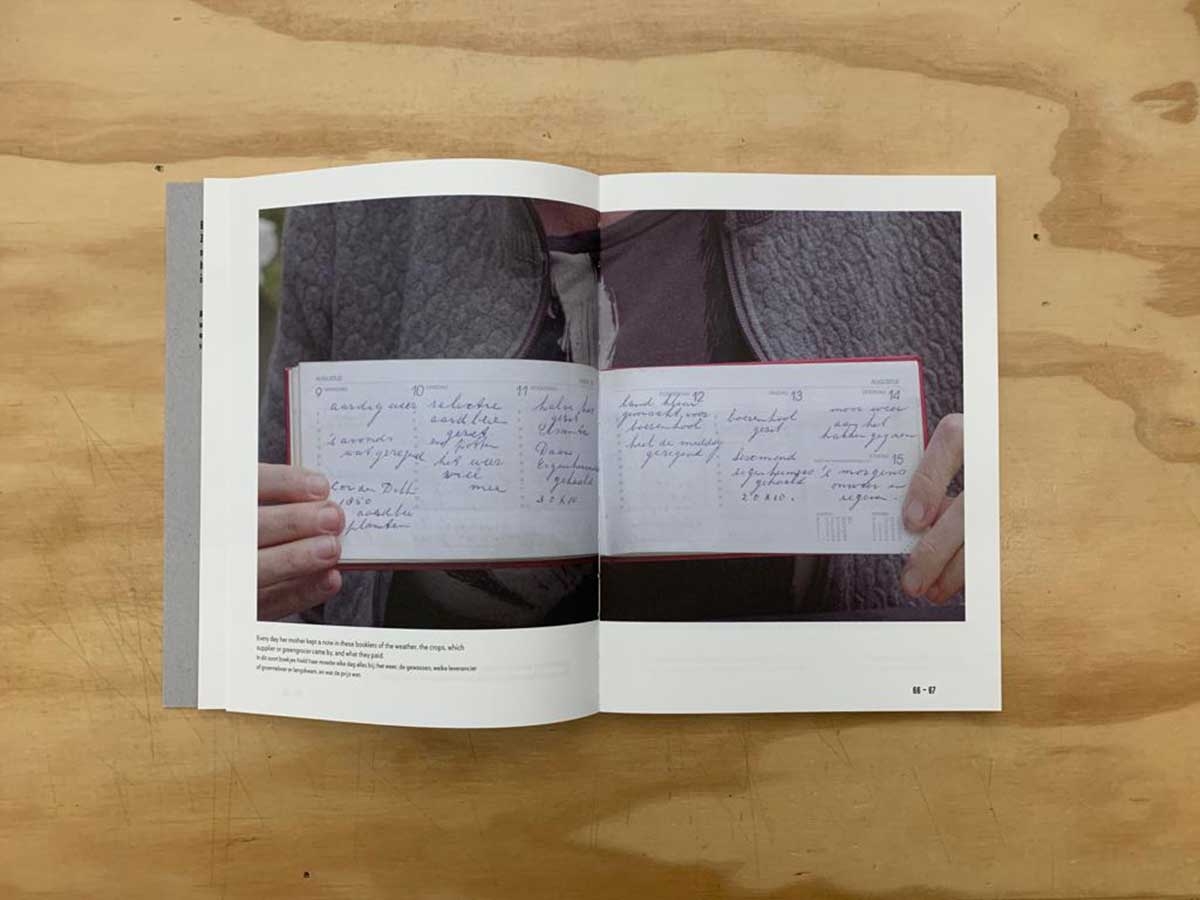 AUGUSTUS
9
aardig weer
's avonds
wat geregend
Cor den
1250
aardbei
planten
10
selectie
aardbeien
gezet
en potten
het weer
viel
mee
11
halve
gezet
Daan
Eigenheimers
gehaald
30 x 10
12
land klaar
gemaakt voor
boerenkool
heel de middag
geregend
AUGUSTUS
13
boerenkool
gezet
Sissmond
eigenheimers
gehaald
20 x 10.
14
mooi weer
aan het
hakken gegaan
15
's morgens
onweer en
regen
Every day her mother kept a note in these booklets of the weather, the crops, which
supplier or greengrocer came by, and what they paid.
In dit soort boekjes hield haar moeder elke dag alles bij: het weer, de gewassen, welke leverancier
of groenteboer er langskwam, en wat de prijs was.
66 – 67